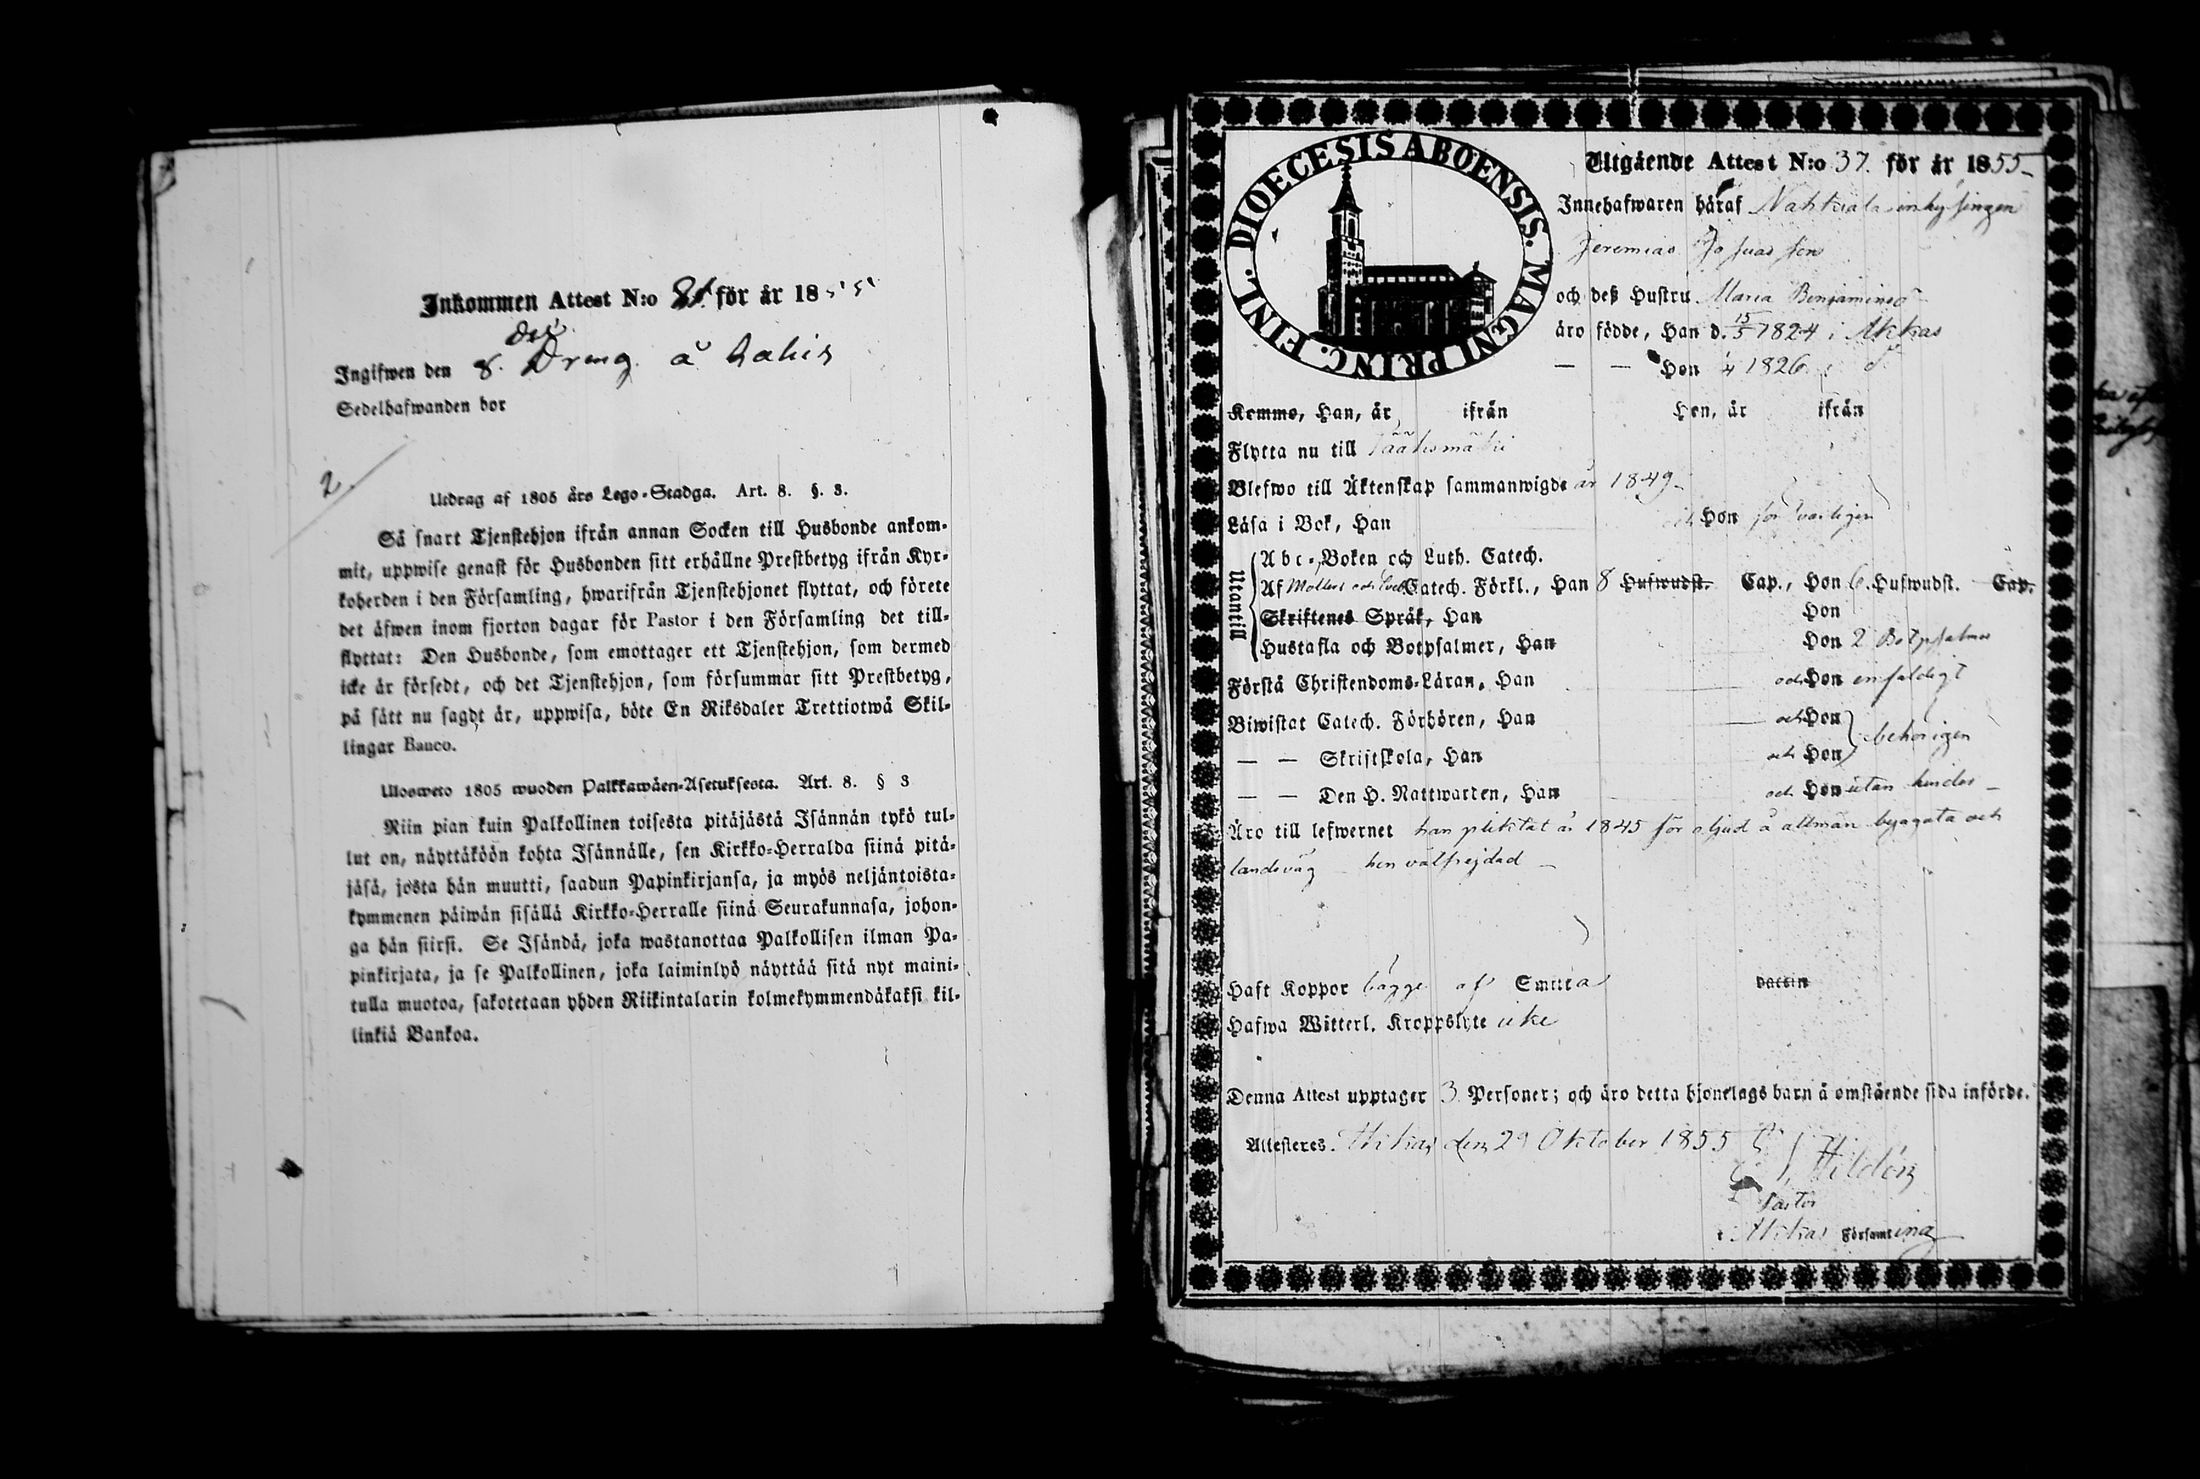 Inkommen Attest N:o 81 för år 1855
Ingifwen den 8. Dec. Dreng å
Sedelhafwanden bor
2.
Utdrag af 1805 års Lego-Stadga. Art. 8. §. 3.
Så snart Tjenstehjon ifrån annan Socken till Husbonde ankom-
mit, uppwise genast för Husbonden sitt erhållne Prestbetyg ifrån Kyr-
koherden i den Församling, hwarifrån Tjenstehjonet flyttat, och förete
det äfwen inom fjorton dagar för Pastor i den Församling det till-
flyttat: Den Husbonde, som emottager ett Tjenstehjon, som dermed
icke är försedt, och det Tjenstehjon, som försummar sitt Prestbetyg,
på sätt nu sagdt är, uppwisa, böte En Riksdaler Trettiotwå Skil-
lingar Banco.
Uloswetо 1805 wuoden Palkkawäen-Asetuksesta. Art. 8. § 3
Niin pian kuin Palkollinen toisesta pitäjästä Isännän tykö tul-
lut on, näyttäköön kohta Isännälle, sen Kirkko-Herralda siinä pitä-
jäsä, josta hän muutti, saadun Papinkirjansa, ja myös neljäntoista-
kymmenen päiwän sisällä Kirkko-Herralle siinä Seurakunnasa, johon-
ga hän siirsi. Se Isändä, joka wastanottaa Palkollisen ilman Pa-
pinkirjata, ja se Palkollinen, joka laiminlyö näyttää sitä nyt maini-
tulla muotoa, sakotetaan yhden Riikintalarin kolmekymmendäkaksi kil-
linkiä Bankoa.
FINL. DIOECESIS ABOENSIS. MAGNI PRINC.
Utgående Attest N:o 37. för år 1855
Innehafwaren häraf Nahkiala inhysingen
Jeremias Josuas son
och deß Hustru Maria Benjaminsd
äro födde, Han d. 15/5 1824 i Akkas
— — Hon 1826 i do
Komme, Han, år ifrån Hon, år ifrån
Flytta nu till Sääksmäki
Blefwo till Äktenskap sammanwigde år 1849
Läsa i Bok, Han och Hon försvarligen
Utantill
Abc-Boken och Luth. Catech.
Af Catech. Förkl., Han 8 Hufwudst. Cap., Hon 6 Hufwudst. Cap.
Skriftenes Språk, Han Hon
Hustafla och Botpsalmer, Han Hon 2 Botpsalmer
Förstå Christendoms-Läran, Han och Hon enfaldigt
Biwistat Catech. Förhören, Han och Hon
— — Skriftskola, Han och Hon behörigen
— — Den H. Nattwarden, Han och Hon utan hinder
Äro till lefwernet han pliktat år 1845 för oljud å allmän bygata och
landsväg hon välfrejdad
Haft Koppor bägge af Smitta Vaccin
Hafwa Witterl. Kroppslyte icke
Denna Attest upptager 3 Personer; och äro detta hjonelags barn å omstående sida införde.
Attesteres. Akkas den 29 Oktober 1855
Hildén
Pastor
i Akkas Församling